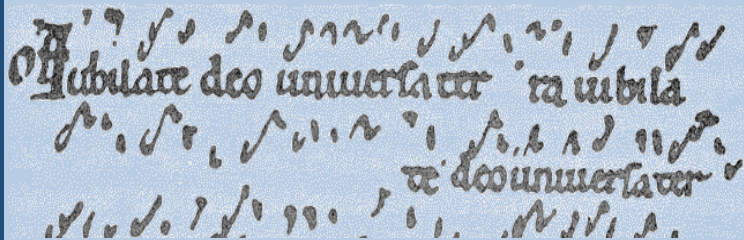 Iubilate deo uniuersa ter ra iubila
te deo uniuersa ter